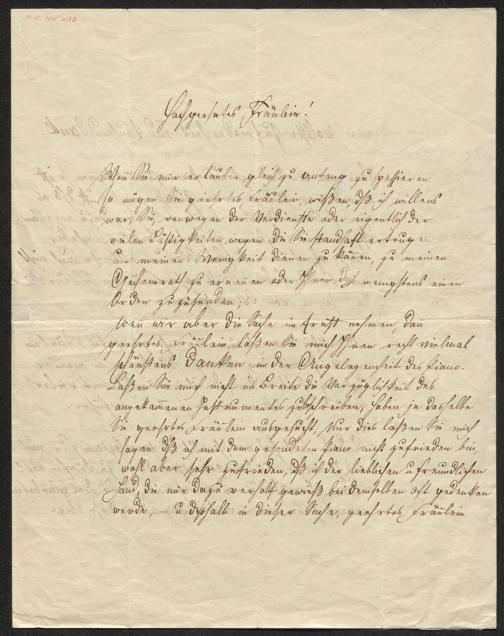 Hochgeehrtes Fräulein!
Wenn Sie mir erlauben gleich zu Anfang zu passieren
so mögen Sie geehrtes Fräulein, wißen, dß ich willens
war, Sie, von wegen der Verdienste oder eigentlich der
vielen Lästigkeiten wegen die Sie standhaft ertrugen
um meiner Wenigkeit dienen zu können, zu meinen
Geheimrath zu ernennen oder Ihnen doch wenigstens einen
Orden zuzusenden.
Wenn wir aber die Sache in Ernst nehmen, dann
geehrtes Fräulein, laßen Sie mich Ihnen recht vielmal
schönstens Danken in der Angelegenheit des Piano.
Laßen Sie mich nicht in Breite die Vorzüglichkeit des
angekommenen Instrumentes beschreiben, haben ja dasselbe
Sie geehrtes Fräulein ausgesucht. Nur dies laßen Sie mich
sagen dß ich mit dem gesendeten Piano nicht zufrieden bin
wohl aber sehr zufrieden, dß ich der lieblichen u freundlichen
Hand, die mir dazu verhalf gewiß bei demselben oft gedenken
werde, – u deßhalb in dieser Sache, geehrtes Fräulein